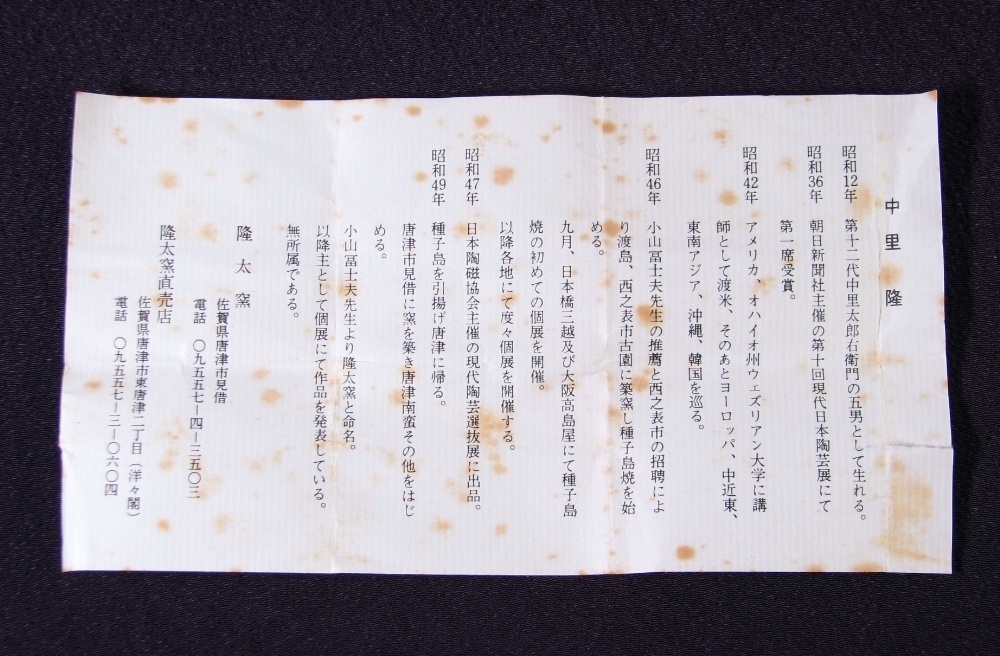 中里 隆
昭和12年 第十二代中里太郎右衛門の五男として生れる。
昭和36年 朝日新聞社主催の第十回現代日本陶芸展にて
第一席受賞。
昭和42年 アメリカ、オハイオ州ウェズリアン大学に講
師として渡米、そのあとヨーロッパ、中近東、
東南アジア、沖縄、韓国を巡る。
昭和46年 小山冨士夫先生の推薦と西之表市の招聘によ
り渡島、西之表市古園に築窯し種子島焼を始
める。
九月、日本橋三越及び大阪高島屋にて種子島
焼の初めての個展を開催。
以降各地にて度々個展を開催する。
昭和47年 日本陶磁協会主催の現代陶芸選抜展に出品。
昭和49年 種子島を引揚げ唐津に帰る。
唐津市見借に窯を築き唐津南蛮その他をはじ
める。
小山冨士夫先生より隆太窯と命名。
以降主として個展にて作品を発表している。
無所属である。
隆太窯
佐賀県唐津市見借
電話 〇九五五七―四―三五〇三
隆太窯直売店
佐賀県唐津市東唐津二丁目(洋々閣)
電話 〇九五五七―三―〇六〇四